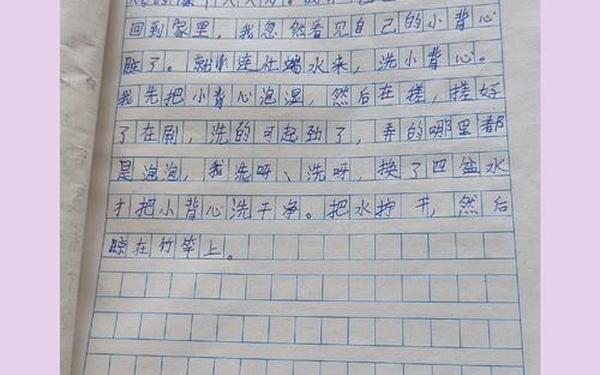 回到家里，我忽然看见自己的小背心
脏了。就水连忙端水来，洗小背心。
我先把小背心泡湿，然后在搓，搓好
了在刷，洗的可起劲了，弄的哪里都
是泡泡，我洗呀、洗呀，换了四盆水
才把小背心洗干净。把水拧干，然后
晾在竹竿上。